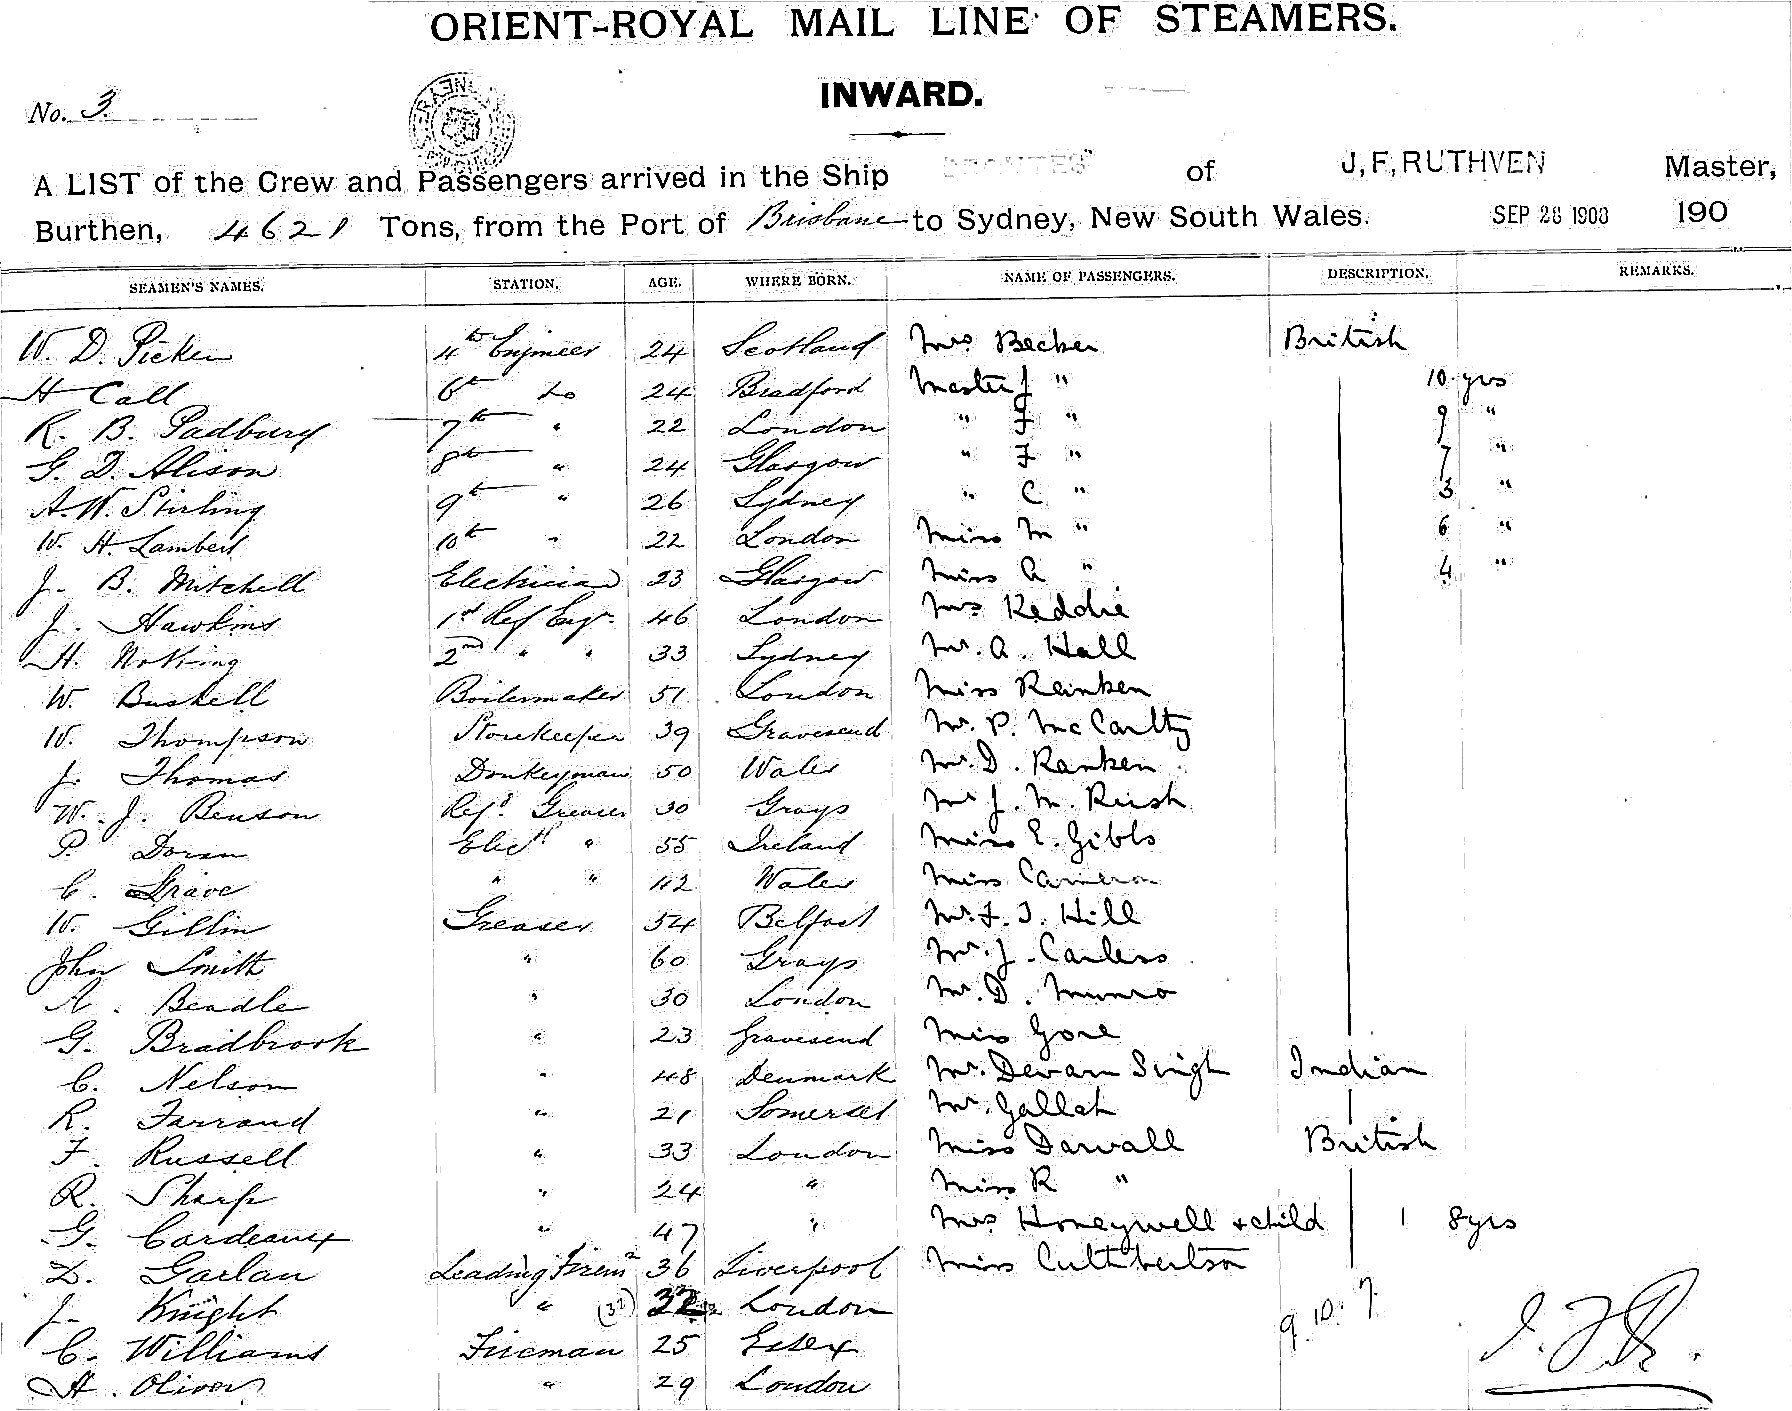 ORIENT-ROYAL MAIL LINE OF STEAMERS.
INWARD.
No. 3
A LIST of the Crew and Passengers arrived in the Ship of J, F, RUTHVEN Master,
Burthen, 4621 Tons, from the Port of Brisbane to Sydney, New South Wales. SEP 26 1908 190
SEAMEN'S NAMES. STATION. AGE. WHERE BORN. NAME OF PASSENGERS. DESCRIPTION. REMARKS.
W. D. Picken 4th Engineer 24 Scotland Mrs Becker British
H Call 6th do 24 Bradford Master J " 10 yrs
R. B. Padbury 7th " 22 London " F " 9 "
G. D. Alison 8th " 24 Glasgow " F " 7 "
A. W. Stirling 9th " 26 Sydney " C " 3 "
W. H. Lambert 10th " 22 London Miss M " 6 "
J. B. Mitchell Electrician 23 Glasgow Miss A " 4 "
J. Hawkins 1st Ref Engr. 46 London Mrs Keddie
H. Notking 2nd " " 33 Sydney Mr. A. Hall
W. Buskell Boilermaker 51 London Miss Ranken
W. Thompson Storekeeper 39 Gravesend Mr. P. McCarthy
J. Thomas Donkeyman 50 Wales Mr. D. Ranken
W. J. Benson Refr. Greaser 30 Grays Mr J. M. Rush
P. Doran Elect " 55 Ireland Miss E. Gibbs
C. Grave " " 42 Wales Miss Cameron
W. Gillin Greaser 54 Belfast Mr. F. J. Hill
John Smith " 60 Grays Mr. J. Carless
A. Beadle " 30 London Mr. D. Munro
G. Bradbrook " 23 Gravesend Miss Gore
C. Nelson " 48 Denmark Mr. Devam Singh Indian
R. Farrand " 21 Somerset Mr. Gallah
F. Russell " 33 London Miss Darvall British
R. Sharp " 24 " Miss R "
G. Cardeaux " 47 " Mrs Honeywell + child 1 8 yrs
D. Garlan Leading Firemn 36 Liverpool Miss Cuthbertson
J. Knight " (32) 32 London 9. 10. 7.
C. Williams Fireman 25 Essex
H. Oliver " 29 London